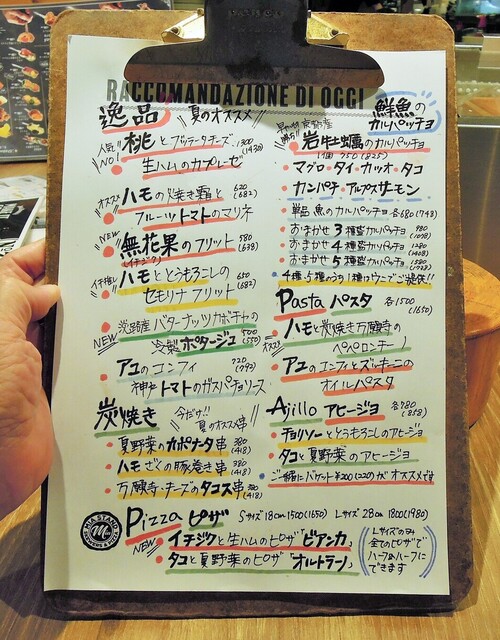 RACCOMANDAZIONE DI OGGI
逸品 夏のオススメ
人気NO!
桃とブッラータチーズ 1300
生ハムのカプレーゼ (1430)
オススメ
ハモの焼き霜と 620
フルーツトマトのマリネ (682)
NEW
無花果のフリット 580
(イチジク) (638)
イチ推し
ハモととうもろこしの 650
セモリナフリット (682)
NEW
淡路産バターナッツカボチャの
冷製ポタージュ 500
(550)
アユのコンフィ 720
(792)
神戸トマトのガスパチョソース
炭焼き 今だけ!!
夏のオススメ串
夏野菜のカポナータ串 380
(418)
ハモざくの豚巻き串 380
(418)
万願寺・チーズのタコス串 380
(418)
鮮魚の
カルパッチョ
岩牡蠣のカルパッチョ
(1個) 750 (825)
マグロ・タイ・カツオ・タコ
カンパチ・アルプスサーモン
単品 魚のカルパッチョ 各680(748)
おまかせ3種盛カルパッチョ 980
(1078)
おまかせ4種盛カルパッチョ 1280
(1408)
おまかせ5種盛カルパッチョ 1580
4種・5種のうち1種はウニでご提供!!
Pasta パスタ 各1500
(1650)
ハモと炭焼き万願寺の
オススメ
ペペロンチーノ
アユのコンフィとズッキーニの
オイルパスタ
Ajillo アヒージョ 各780
(858)
チョリソーととうもろこしのアヒージョ
タコと夏野菜のアヒージョ
ご一緒にバケット¥200(220)がオススメです
Pizza ピザ Sサイズ18cm1500(1650) Lサイズ28cm1800(1980)
NEW
イチジクと生ハムのピザ「ビアンカ」
タコと夏野菜のピザ「オルトラーノ」
Lサイズのみ
全てのピザで
ハーフ&ハーフに
できます